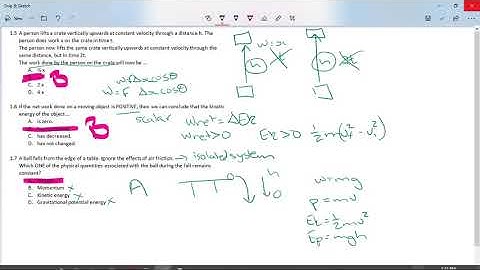 Snip & Sketch
1.5 A person lifts a crate vertically upwards at constant velocity through a distance h. The
person does work x on the crate in time t.
The person now lifts the same crate vertically upwards at constant velocity through the
same distance, but in time 2t.
The work done by the person on the crate will now be ...
C. 2 x
D. 4 x
B
W=FΔxcosθ
W=F Δxcosθ
W=x
h
h
1.6 If the net work done on a moving object is POSITIVE, then we can conclude that the kinetic
energy of the object...
A. is zero.
C. has decreased.
D. has not changed
B
scalar
Wnet=ΔEk
Wnet>0
Ek>0
½m(vf²-vi²)
1.7 A ball falls from the edge of a table. Ignore the effects of air friction. → isolated system
Which ONE of the physical quantities associated with the ball during the fall remains
constant?
B. Momentum x
C. Kinetic energy x
D. Gravitational potential energy x
A
h
0
w=mg
p=mv
Ek=½mv²
Ep=mgh